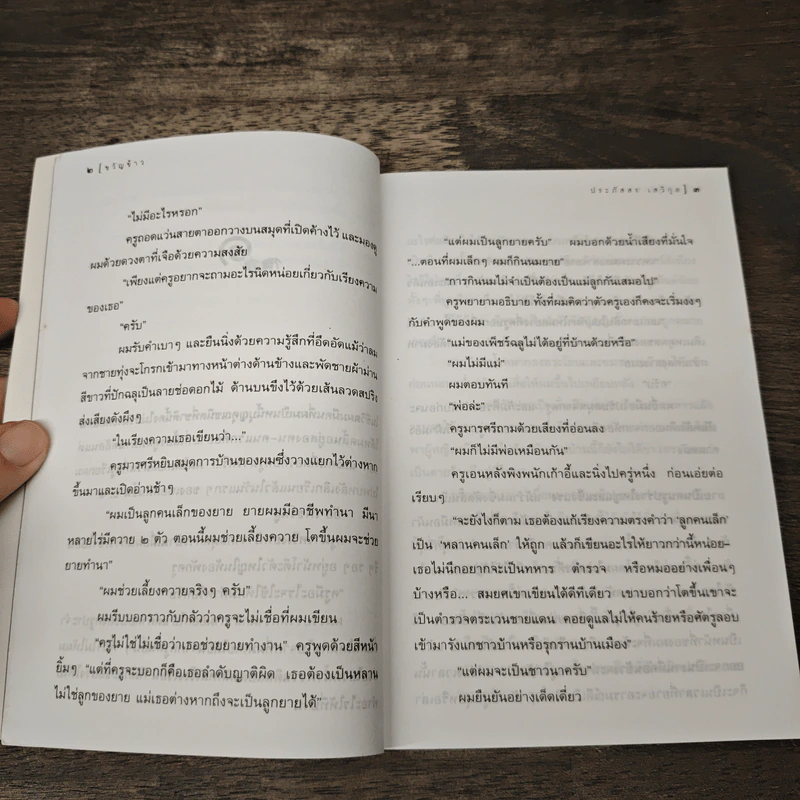 ๒ [ ขวัญข้าว
"ไม่มีอะไรหรอก"
ครูถอดแว่นสายตาออกวางบนสมุดที่เปิดค้างไว้ และมองดู
ผมด้วยดวงตาที่เจือด้วยความสงสัย
"เพียงแต่ครูอยากจะถามอะไรนิดหน่อยเกี่ยวกับเรียงความ
ของเธอ"
"ครับ"
ผมรับคำเบาๆ และยืนนิ่งด้วยความรู้สึกที่อึดอัดแม้ว่าลม
จากชายทุ่งจะโกรกเข้ามาทางหน้าต่างด้านข้างและพัดชายผ้าม่าน
สีขาวที่ปักฉลุเป็นลายช่อดอกไม้ ด้านบนขึงไว้ด้วยเส้นลวดสปริง
ส่งเสียงดังผึงๆ
"ในเรียงความเธอเขียนว่า..."
ครูมารศรีหยิบสมุดการบ้านของผมซึ่งวางแยกไว้ต่างหาก
ขึ้นมาและเปิดอ่านช้าๆ
"ผมเป็นลูกคนเล็กของยาย ยายผมมีอาชีพทำนา มีนา
หลายไร่มีควาย ๒ ตัว ตอนนี้ผมช่วยเลี้ยงควาย โตขึ้นผมจะช่วย
ยายทำนา"
"ผมช่วยเลี้ยงควายจริงๆ ครับ"
ผมรีบบอกราวกับกลัวว่าครูจะไม่เชื่อที่ผมเขียน
"ครูไม่ใช่ไม่เชื่อว่าเธอช่วยยายทำงาน" ครูพูดด้วยสีหน้า
ยิ้มๆ "แต่ที่ครูจะบอกก็คือเธอลำดับญาติผิด เธอต้องเป็นหลาน
ไม่ใช่ลูกของยาย แม่เธอต่างหากถึงจะเป็นลูกยายได้"
ประภัสสร เสวิกุล ] ๓
"แต่ผมเป็นลูกยายครับ" ผมบอกด้วยน้ำเสียงที่มั่นใจ
"...ตอนที่ผมเล็กๆ ผมก็กินนมยาย"
"การกินนมไม่จำเป็นต้องเป็นแม่ลูกกันเสมอไป"
ครูพยายามอธิบาย ทั้งที่ผมคิดว่าตัวครูเองก็คงจะเริ่มงงๆ
กับคำพูดของผม
"แม่ของเพ็ชร์ฉลูไม่ได้อยู่ที่บ้านด้วยหรือ"
"ผมไม่มีแม่"
ผมตอบทันที
"พ่อล่ะ"
ครูมารศรีถามด้วยเสียงที่อ่อนลง
"ผมก็ไม่มีพ่อเหมือนกัน"
ครูเอนหลังพิงพนักเก้าอี้และนิ่งไปครู่หนึ่ง ก่อนเอ่ยต่อ
เรียบๆ
"จะยังไงก็ตาม เธอต้องแก้เรียงความตรงคำว่า 'ลูกคนเล็ก'
เป็น 'หลานคนเล็ก' ให้ถูก แล้วก็เขียนอะไรให้ยาวกว่านี้หน่อย–
เธอไม่นึกอยากจะเป็นทหาร ตำรวจ หรือหมออย่างเพื่อนๆ
บ้างหรือ... สมยศเขาเขียนได้ดีทีเดียว เขาบอกว่าโตขึ้นเขาจะ
เป็นตำรวจตระเวนชายแดน คอยดูแลไม่ให้คนร้ายหรือศัตรูลอบ
เข้ามารังแกชาวบ้านหรือรุกรานบ้านเมือง"
"แต่ผมจะเป็นชาวนาครับ"
ผมยืนยันอย่างเด็ดเดี่ยว